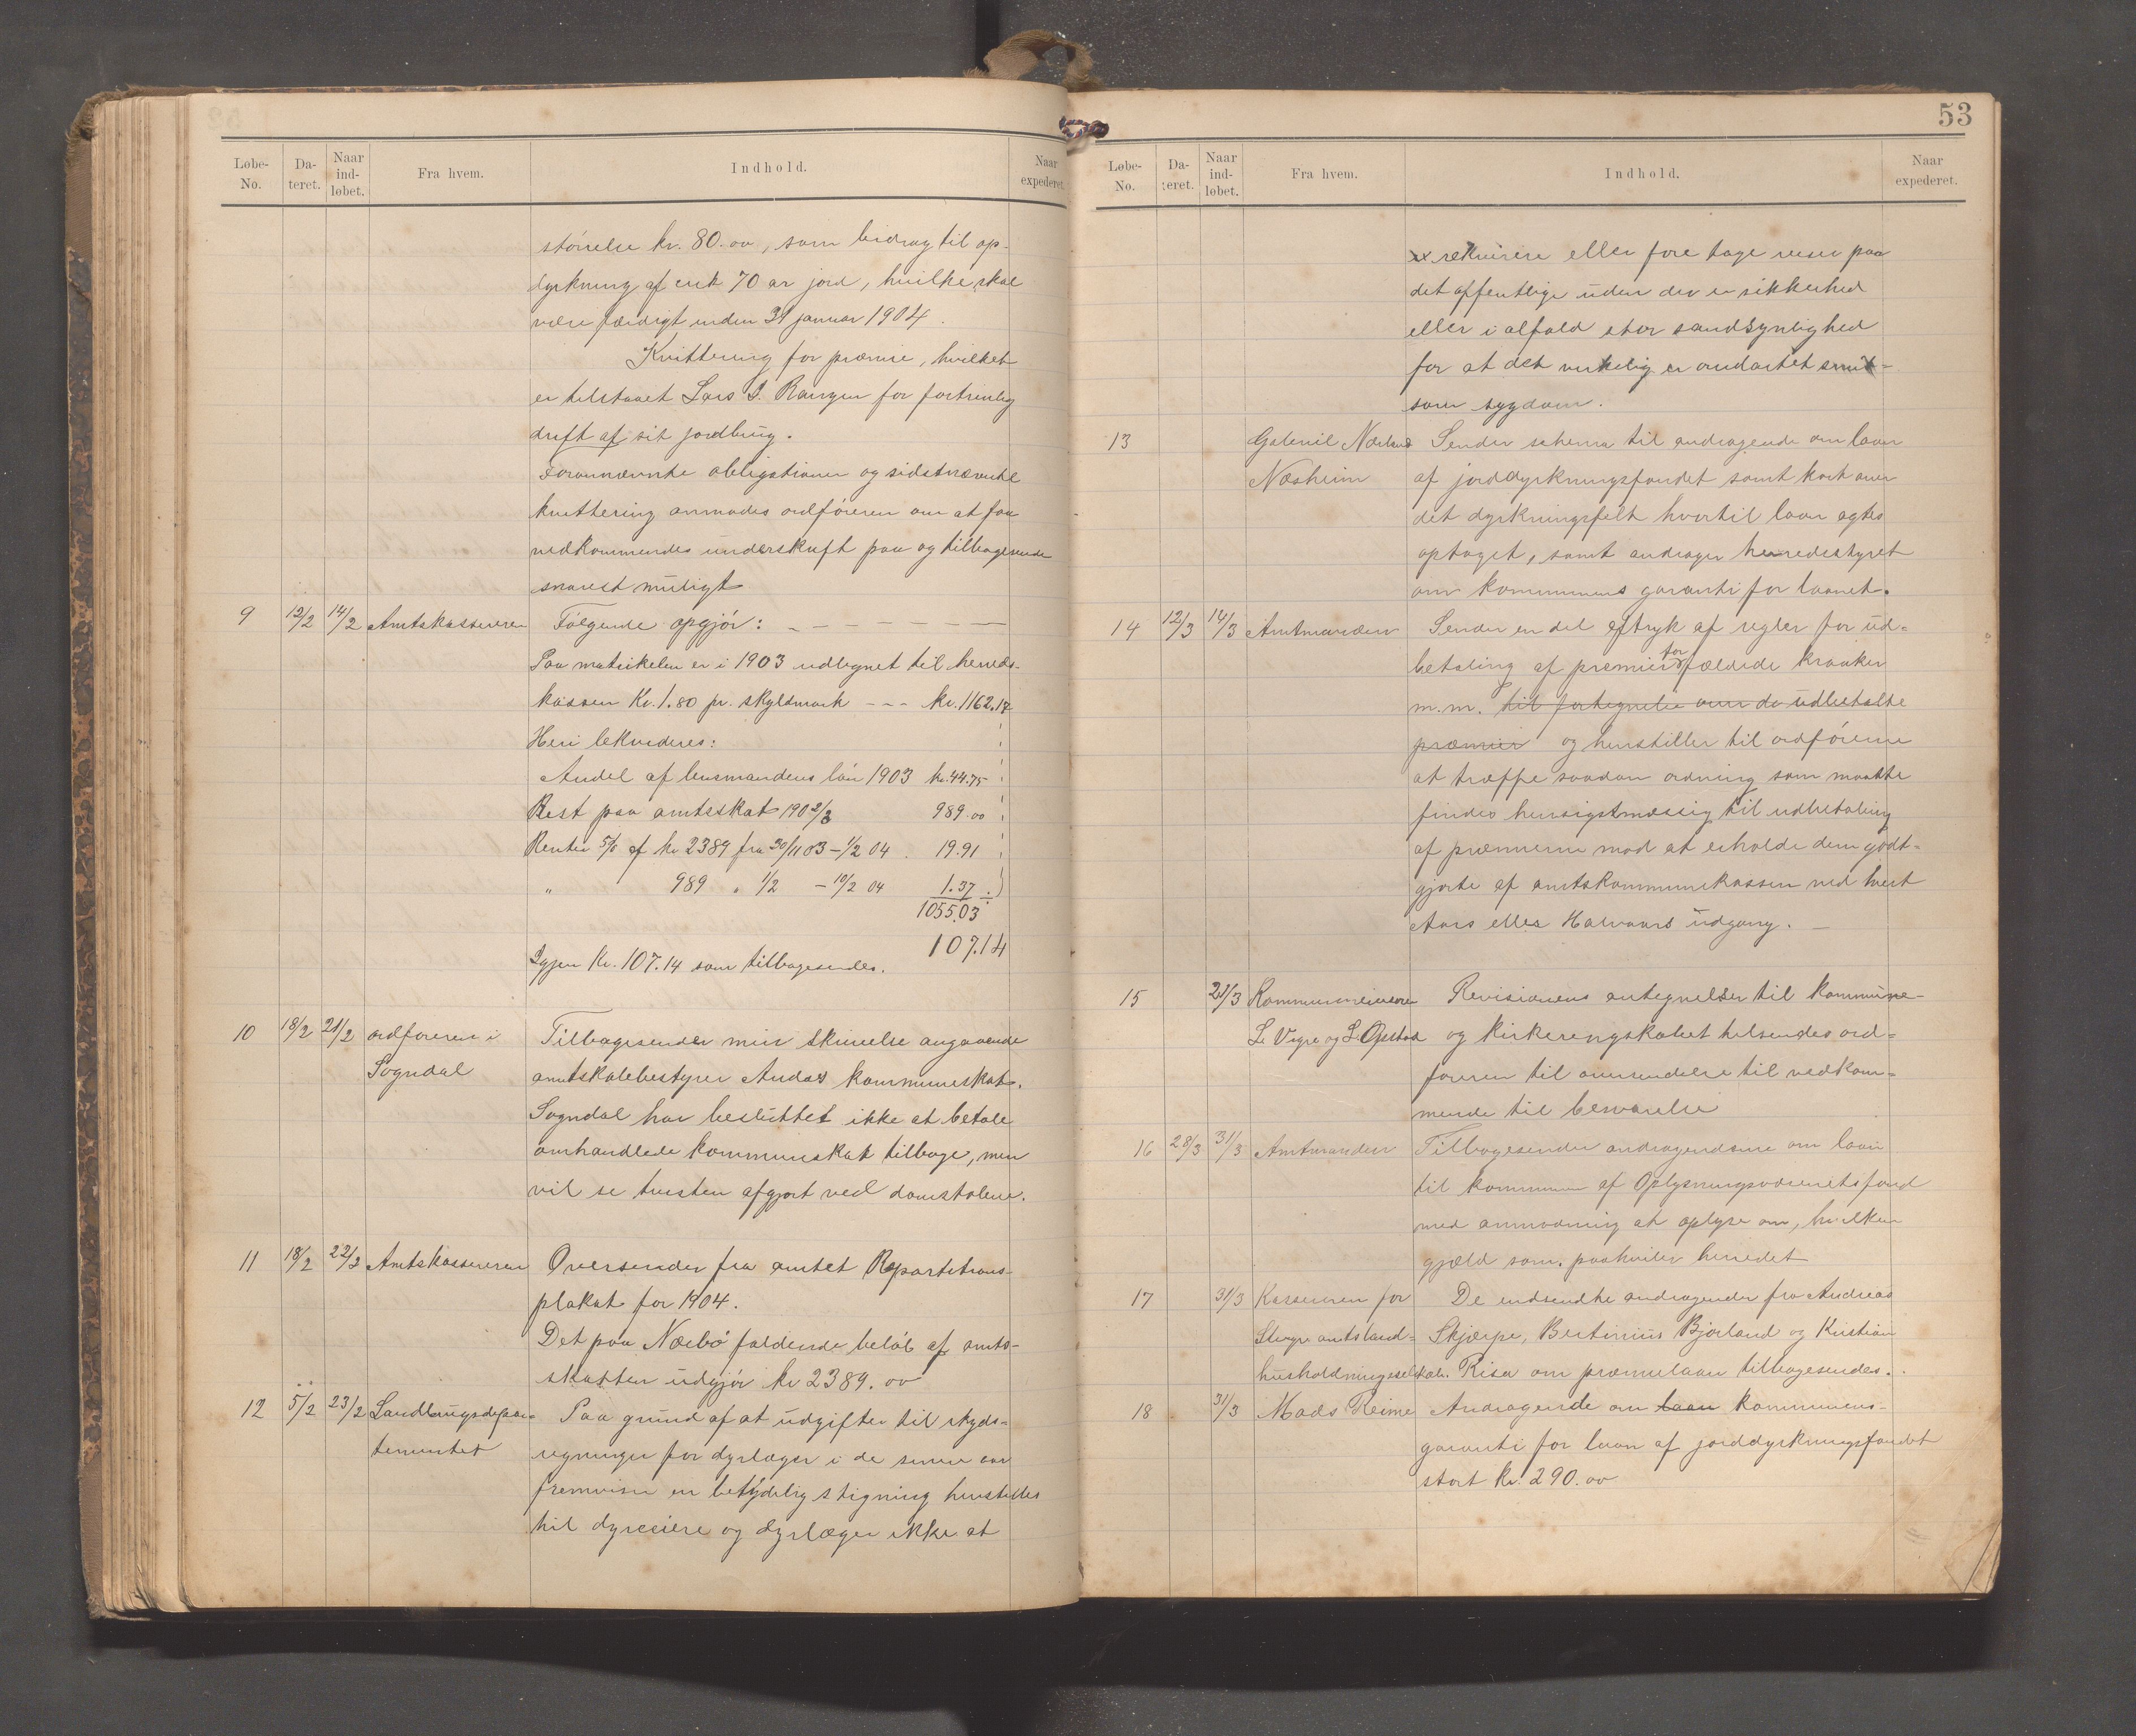 Løbe-No. Da-teret. Naar ind-løbet. Fra hvem. Indhold. Naar expederet.
størrelse kr. 80.oo, som bidrag til op-
dyrkning af cirk 70 ar jord, hvilke skal
være færdigt inden 31 januar 1904.
Kvittering for præmie, hvilket
er tilstaaet Lars J. for fortrinlig
drift af sit jordbrug.
Forannævnte obligationer og sidstnævnte
kvittering anmodes ordføreren om at faa
vedkommendes underskrift paa og tilbagesende
snarest muligt
9 12/2 14/2 Amtskassereren Følgende opgjør: – – – – – –
Paa matrikelen er i 1903 udlignet til herreds-
kassen Kr. 1.80 pr. skyldmark – – – kr. 1162.17
Heri
Andel af lensmandens løn 1903 kr. 44.75
Rest paa amtsskat 1902/3 989.oo
Renter 5% af kr 2389 fra 30/11 03 – 1/2 04. 19.91
" 989 " 1/2 – 10/2 04 1.37
1055.03
107.14
Igjen Kr. 107.14 som tilbagesendes.
10 18/2 21/2 ordføreren i Tilbagesender min skrivelse angaaende
Sogndal amtskolebestyrer Andås kommuneskat.
Sogndal har besluttet ikke at betale
omhandlede kommuneskat tilbage, men
vil se tvisten afgjort ved domstolene.
11 18/2 22/2 Amtskassereren Oversender fra amtet Repartitions-
plakat for 1904.
Det paa Nærbø faldende beløb af amts-
skatten udgjør kr 2389.oo
12 5/2 23/2 Landbrugsdepar- Paa grund af at udgifter til skyds-
tementet regninger for dyrlæger i de senere aar
fremviser en betydelig stigning henstilles
til dyreeiere og dyrlæger ikke at
53
Løbe-No. Da-teret. Naar ind-løbet. Fra hvem. Indhold. Naar expederet.
rekvirere eller foretage reiser paa
det offentlige uden der er sikkerhed
eller i alfald stor sandsynlighed
for at det virkelig er ondartet smit-
som sygdom.
13 Gabriel Nærland Sender schema til andragende om laan
Næsheim af jorddyrkningsfondet samt kart over
det dyrkningsfelt hvortil laan agtes
optaget, samt andrager herredsstyret
om kommunens garanti for laanet.
14 12/3 14/3 Amtmanden Sender en del aftryk af regler for ud-
betaling af premier for fældede kraaker
m.m. til fortegnelse over de udbetalte
præmier og henstiller til ordførerne
at træffe saadan ordning som maatte
findes hensigtsmæssig til udbetaling
af præmierne mod at erholde dem godt-
gjorte af amtskommunekassen ved hvert
Aars eller Halvaars udgang. –
15 21/3 Kommunereviserne Revisionens antegnelser til kommune-
L. Vigre og L. Opstad og kirkeregnskabet tilsendes ord-
føreren til oversendelse til vedkom-
mende til besvarelse
16 28/3 31/3 Amtmanden Tilbagesender andragenderne om laan
til kommunen af Oplysningsvæsenets fond
med anmodning at oplyse om, hvilken
gjæld som paahviler herredet
17 31/3 Kassereren for De indsendte andragender fra Andreas
Stvgr. amts land- Skjærpe, Bertinius Bjorland og Kristian
husholdningselskab. Risa om præmielaan tilbagesendes.
18 31/3 Mads Reime Andragende om laan kommunens-
garanti for laan af jorddyrkningsfondet
stort kr. 290.oo